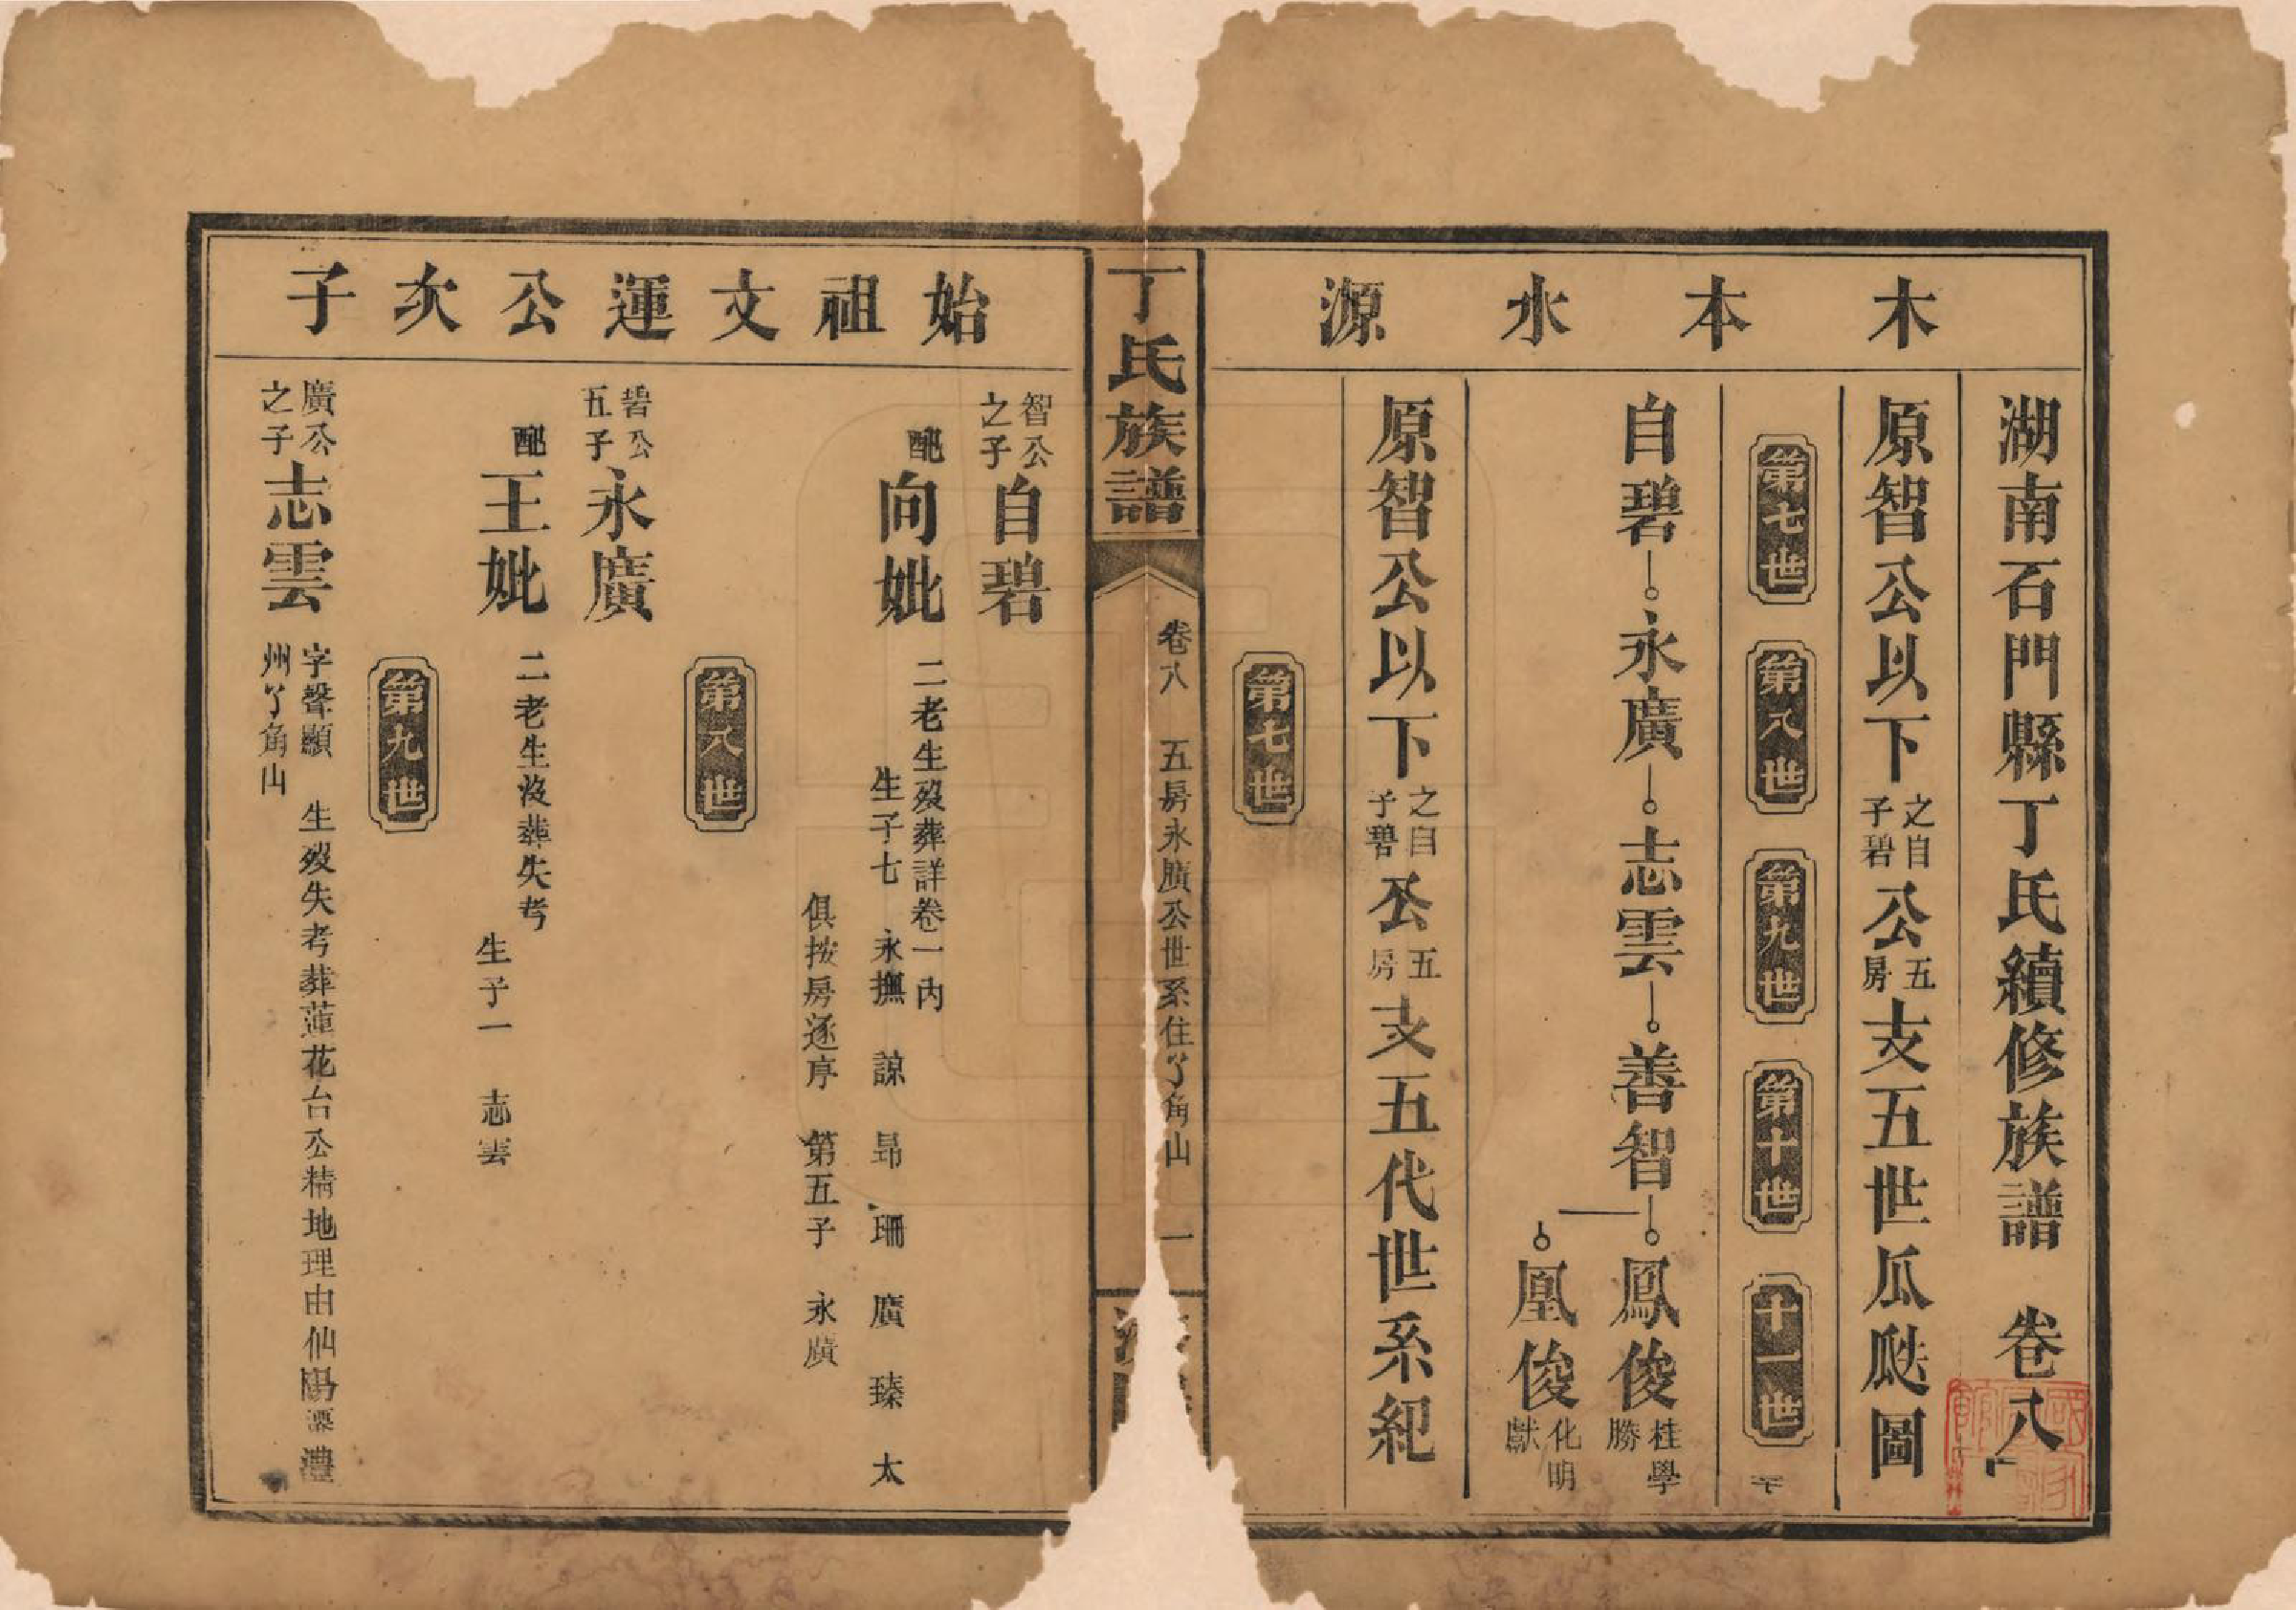 木本水源
湖南石門縣丁氏續修族譜 卷八
原智公以下之子自碧公五房支五世瓜瓞圖
第七世
第八世
第九世
第十世
十一世
自碧 永廣 志雲 善智 鳳俊 桂學 勝
凰俊 化明 獻
原智公以下之子自碧公五房支五代世系紀
第七世
丁氏族譜
卷八 五房永廣公世系住丫角山 一
始祖文運公次子
智公之子 自碧
配 向妣 二老生歿葬詳卷一內
生子七 永撫 諒 昻 珊 廣 臻 太
俱按房逐序 第五子 永廣
第八世
碧公五子 永廣
配 王妣 二老生沒葬失考
生子一 志雲
第九世
廣公之子 志雲 字聲顯 生歿失考葬蓮花台公精地理由仙陽澧
州丫角山